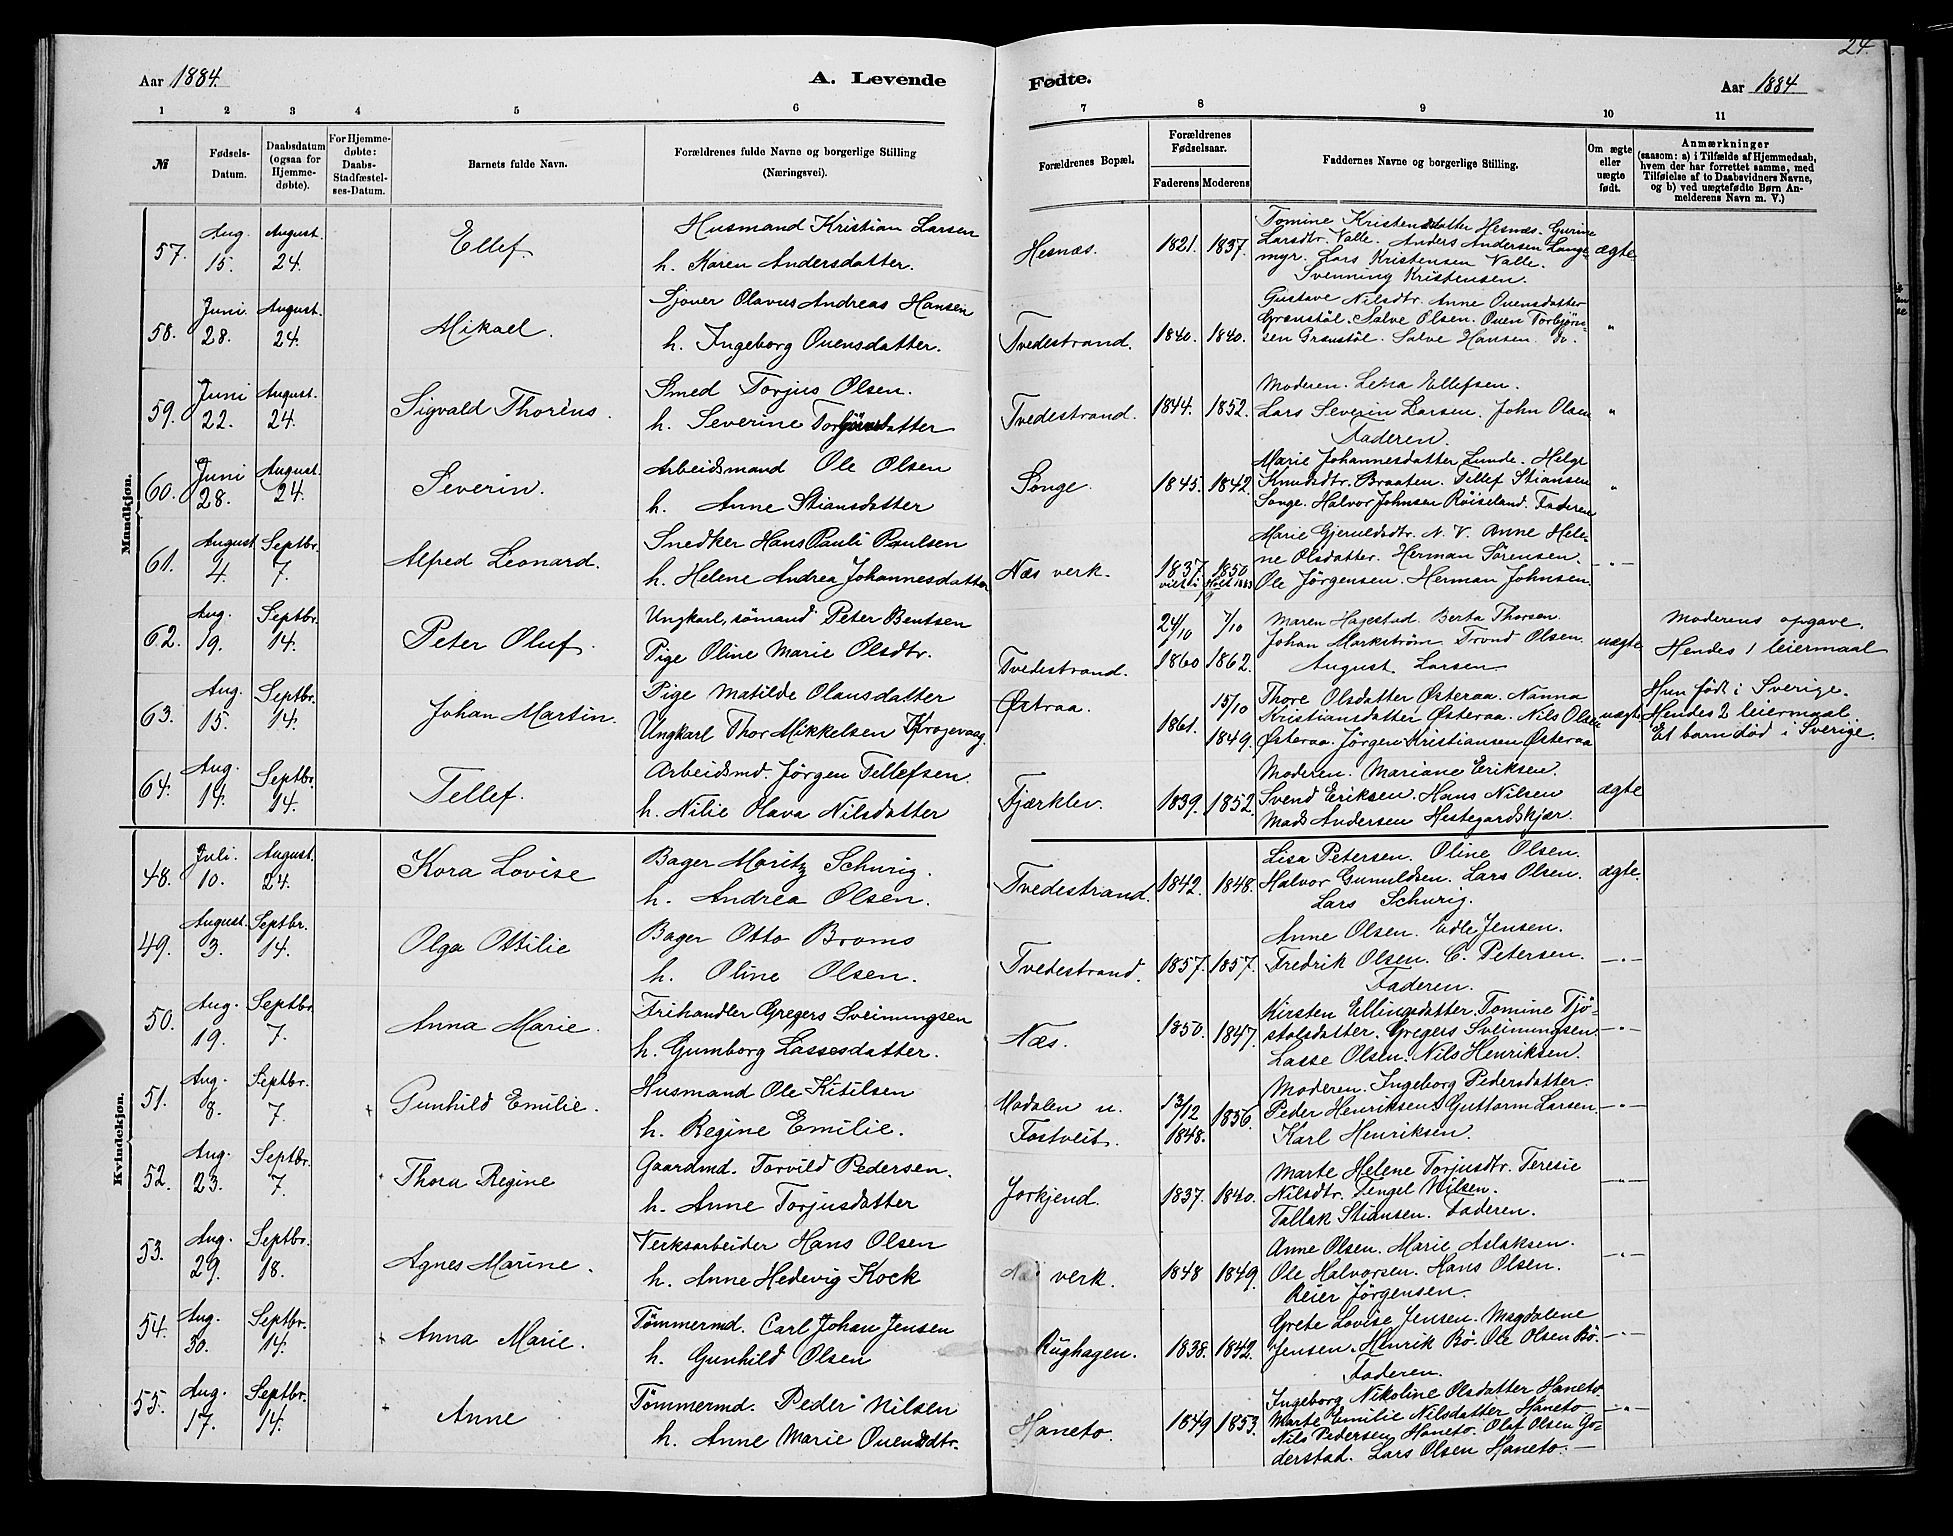 24.
Aar 1884. A. Levende Fødte. Aar 1884.
1 2 3 4 5 6 7 8 9 10 11
№
Fødsels-
Datum.
Daabsdatum
(ogsaa for
Hjemme-
døbte).
For Hjemme-
døbte:
Daabs-
Stadfæstel-
ses-Datum.
Barnets fulde Navn.
Forældrenes fulde Navne og borgerlige Stilling
(Næringsvei).
Forældrenes Bopæl.
Forældrenes
Fødselsaar.
Faderens Moderens
Faddernes Navne og borgerlige Stilling.
Om ægte
eller
uægte
født.
Anmærkninger
(saasom: a) i Tilfælde af Hjemmedaab,
hvem der har forrettet samme, med
Tilføielse af to Daabsvidners Navne,
og b) ved uægtefødte Børn An-
melderens Navn m. V.)
Mandkjøn.
57. Aug. 15. August. 24. Ellef
Husmand Kristian Larsen
h. Karen Andersdatter.
Hesnæs. 1821. 1837.
Tomine Kristensdatter Hesnæs. Gurine
Larsdtr. Valle. Anders Andersen Lange-
myr. Lars Kristensen Valle.
Svenning Kristensen.
ægte
58. Juni 28. August. 24. Mikael.
Sjöver Olavus Andreas Hansen
h. Ingeborg Ouensdatter.
Tvedestrand. 1840. 1840.
Gustave Nilsdtr. Anne Ouensdatter
Grønstöl. Salve Olsen. Ouen Torbjørn-
sen Grønstöl. Salve Hansen. Do.
"
59. Juni 22. August. 24. Sigvald Thorius.
Smed Torjus Olsen.
h. Severine Torbjörnsdatter
Tvedestrand. 1844. 1852.
Moderen. Lena Ellefsen.
Lars Severin Larsen. John Olsen
Faderen.
"
60. Juni 28. August. 24. Severin.
Arbeidsmand Ole Olsen
h. Anne Stiansdatter
Songe. 1845. 1842.
Marie Johannesdatter Lunde. Helge
Knudsdtr. Braaten. Tellef Stiansen
Songe. Halvor Johnsen Röiseland. Faderen
"
61. August 4. Septbr. 7. Alfred Leonard.
Snedker Hans Pauli Paulsen
h. Helene Andrea Johannesdatter
Næs verk. 1837. 1850.
viet i Holt 1883
Marie Gjeruldsdtr. N. V. Anne Hele-
ne Olsdatter. Herman Sörensen.
Ole Jörgensen. Herman Johnsen
—"—
62. Aug. 19. Septbr. 14. Peter Oluf.
Ungkarl, sömand Peter Bentsen
Pige Oline Marie Olsdtr.
Tvedestrand. 24/10 1860 7/10 1862.
Maren Hagestad. Berta Thorsen.
Johan Markström. Trond Olsen.
August Larsen
uægte
Moderens opgave.
Hendes 1 leiermaal
63. Aug. 15. Septbr. 14. Johan Martin.
Pige Matilde Olausdatter
Ungkarl Thor Mikkelsen Krogevaag.
Østraa. 1861. 15/10 1849.
Thore Olsdatter Østeraa. Nanna
Kristiansdatter Østeraa. Nils Olsen
Østeraa. Jörgen Kristiansen Østeraa
uægte
Hun født i Sverige.
Hendes 2 leiermaal.
Et barn død i Sverige.
64. Aug. 14. Septbr. 14. Tellef.
Arbeidsmd. Jörgen Tellefsen.
h. Nilie Olava Nilsdatter
Fjærklev. 1839. 1852.
Moderen. Mariane Eriksen.
Svend Eriksen. Hans Nilsen
Mads Andersen Hestegardskjær.
ægte
Kvindekjøn.
48. Juli. 10. August. 24. Kora Lovise
Bager Moritz Schurig.
h. Andrea Olsen.
Tvedestrand. 1842. 1848.
Lisa Petersen. Oline Olsen.
Halvor Gunuldsen. Lars Olsen.
Lars Schurig.
ægte.
49. August. 3. Septbr. 14. Olga Ottilie
Bager Otto Broms
h. Oline Olsen.
Tvedestrand. 1857. 1857.
Anne Olsen. Edle Jensen.
Fredrik Olsen. C. Petersen.
Faderen.
—"—
50. Aug. 19. Septbr. 7. Anna Marie.
Frihandler Gregers Sveinungsen
h. Gumborg Lassesdatter.
Næs. 1850. 1847.
Kirsten Ellingsdatter. Tomine Tjö-
stolsdatter. Gregers Sveinungsen
Lasse Olsen. Nils Henriksen.
—"—
51. Aug. 8. Septbr. 7. + Gunhild Emilie.
Husmand Ole Kitilsen
h. Regine Emilie.
Modalen u. Fostveit. 13/12 1848. 1856.
Moderen. Ingeborg Pedersdatter.
Peder Henriksen. Guttorm Larsen
Karl Henriksen.
—"—
52. Aug. 23. Septbr. 7. + Thora Regine
Gaardmd. Torvild Pedersen.
h. Anne Torjusdatter
Jorkjend. 1837. 1840.
Marte Helene Torjusdtr. Teresie
Nilsdtr. Tengel Nilsen.
Tallak Stiansen. Faderen.
—"—
53. Aug. 29. Septbr. 18. Agnes Marine.
Verksarbeider Hans Olsen
h. Anne Hedevig Kock
Næs verk. 1848 1849.
Anne Olsen. Marie Aslaksen.
Ole Halvorsen. Hans Olsen.
Reier Jörgensen.
—"—
54. Aug. 30. Septbr. 14. + Anna Marie.
Tömmermd. Carl Johan Jensen
h. Gunhild Olsen
Rughagen. 1838. 1842.
Grete Lovise Jensen. Magdalene
Jensen. Henrik Bö. Ole Olsen Bö.
Faderen.
—"—
55. Aug. 17. Septbr. 14. + Anne
Tömmermd. Peder Nilsen
h. Anne Marie Ouensdtr.
Haneto. 1849 1853.
Ingeborg Nikoline Olsdatter Haneto
Marte Emilie Nilsdatter Haneto
Nils Pedersen Haneto. Olaf Olsen Go-
derstad. Lars Olsen Haneto.
—"—